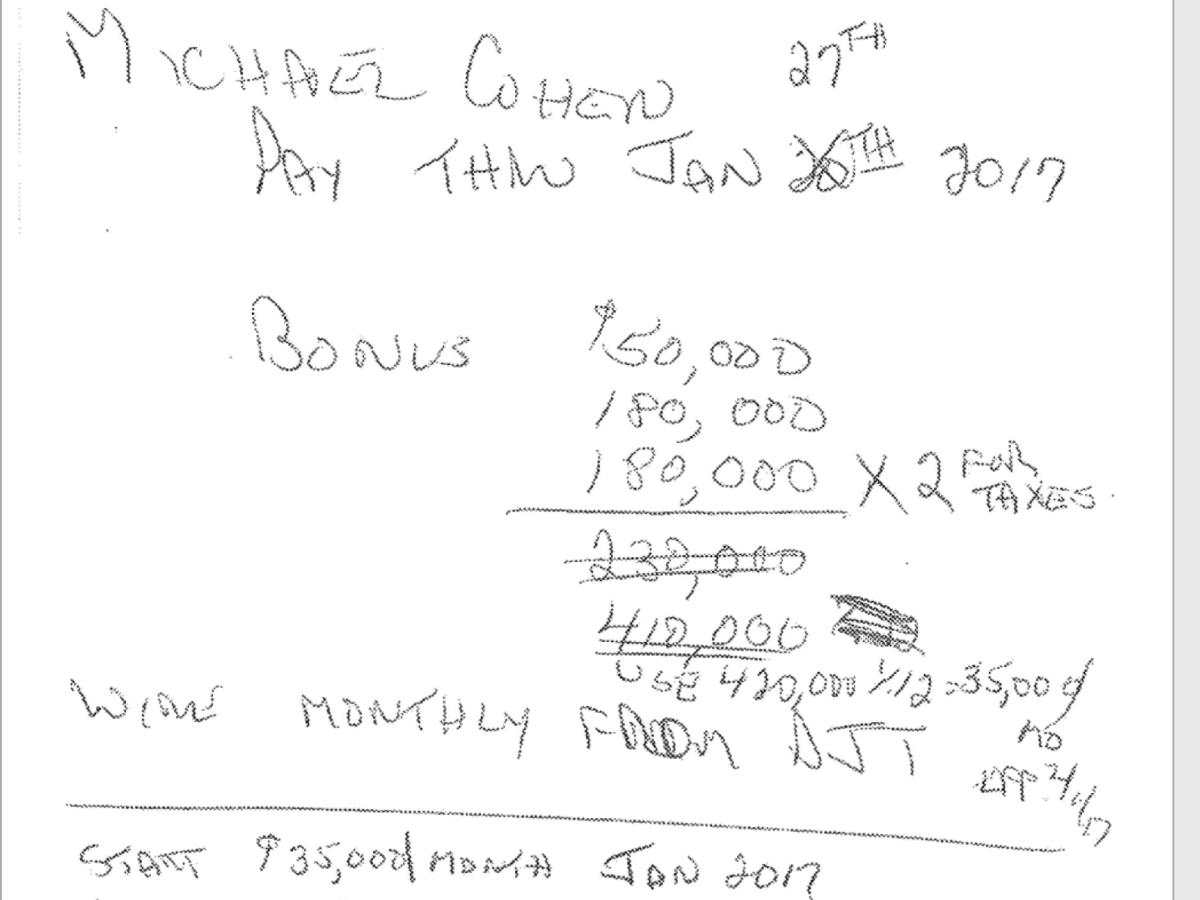 MICHAEL COHEN 27TH
PAY THRU JAN TH 2017
BONUS $50,000
180,000
180,000 X 2 FOR TAXES
230,000
410,000
USE 420,000 1/12 = 35,000/
WIRE MONTHLY FROM DJT MO
EFF 2/1/17
START $35,000/MONTH JAN 2017